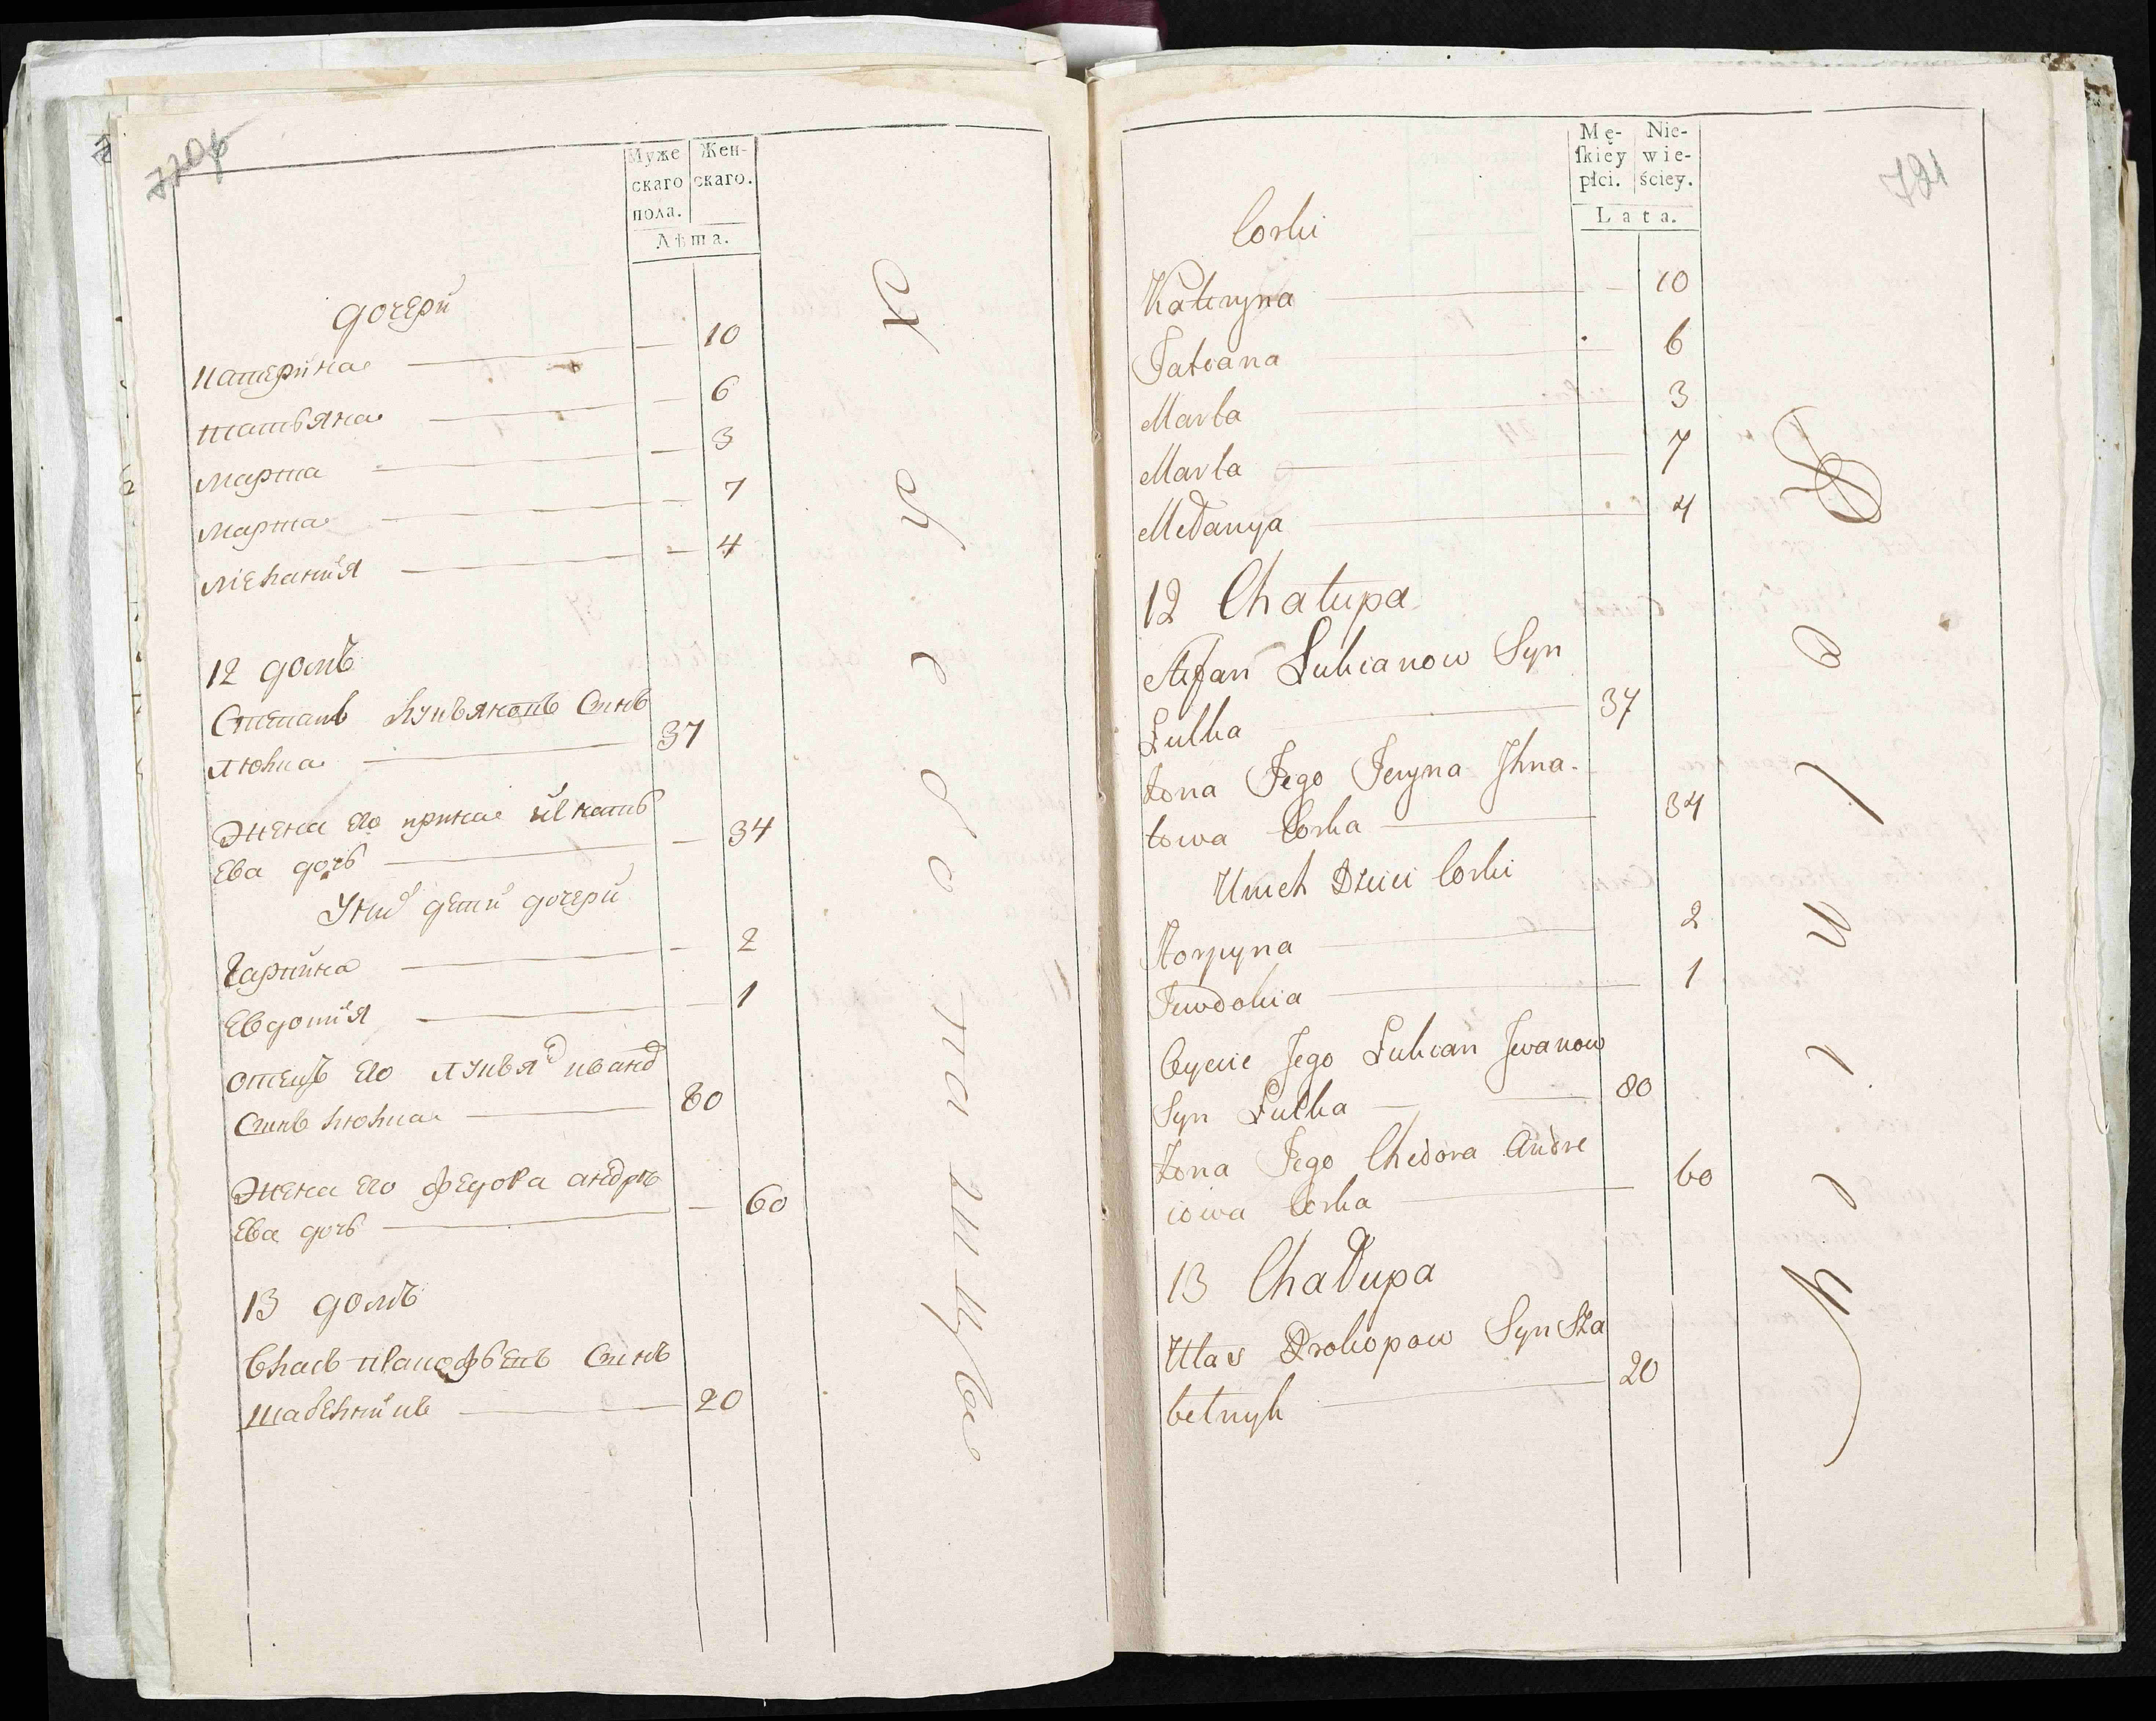 720б
Муже
скаго
пола.
Жен-
скаго.
Лѣта.
дочери
Катерина 10
татьяна 6
марта 3
марта 7
мелания 4
12 домъ
Степанъ лукъяновъ Синъ
люлка 37
Жена его ирина игнать
Ева дочь 34
У нид дети дочери
Гарпина 2
Евдотия 1
отецъ его лукъян иванд
Синъ люлка 80
Жена его федора андре
Ева дочь 60
13 домъ
Власъ прокофьевъ Синъ
шабелникъ 20
721
Mę-
skiey
płci.
Nie-
wie-
ściey.
Lata.
Corki
Kateryna 10
Tatiana 6
Marta 3
Marta 7
Mełanya 4
12 Chałupa
Stefan Lukianow Syn
Lulka 37
Zona Jego Jeryna Jhna-
towa Corka 34
U nich Dzieci Corki
Horpyna 2
Jewdokia 1
Oyciec Jego Lukian Jwanow
Syn Lulka 80
Zona Jego Chedora Andre
iowa Corka 60
13 Chałupa
Ułas Prokopow Syn Sza
belnyk 20